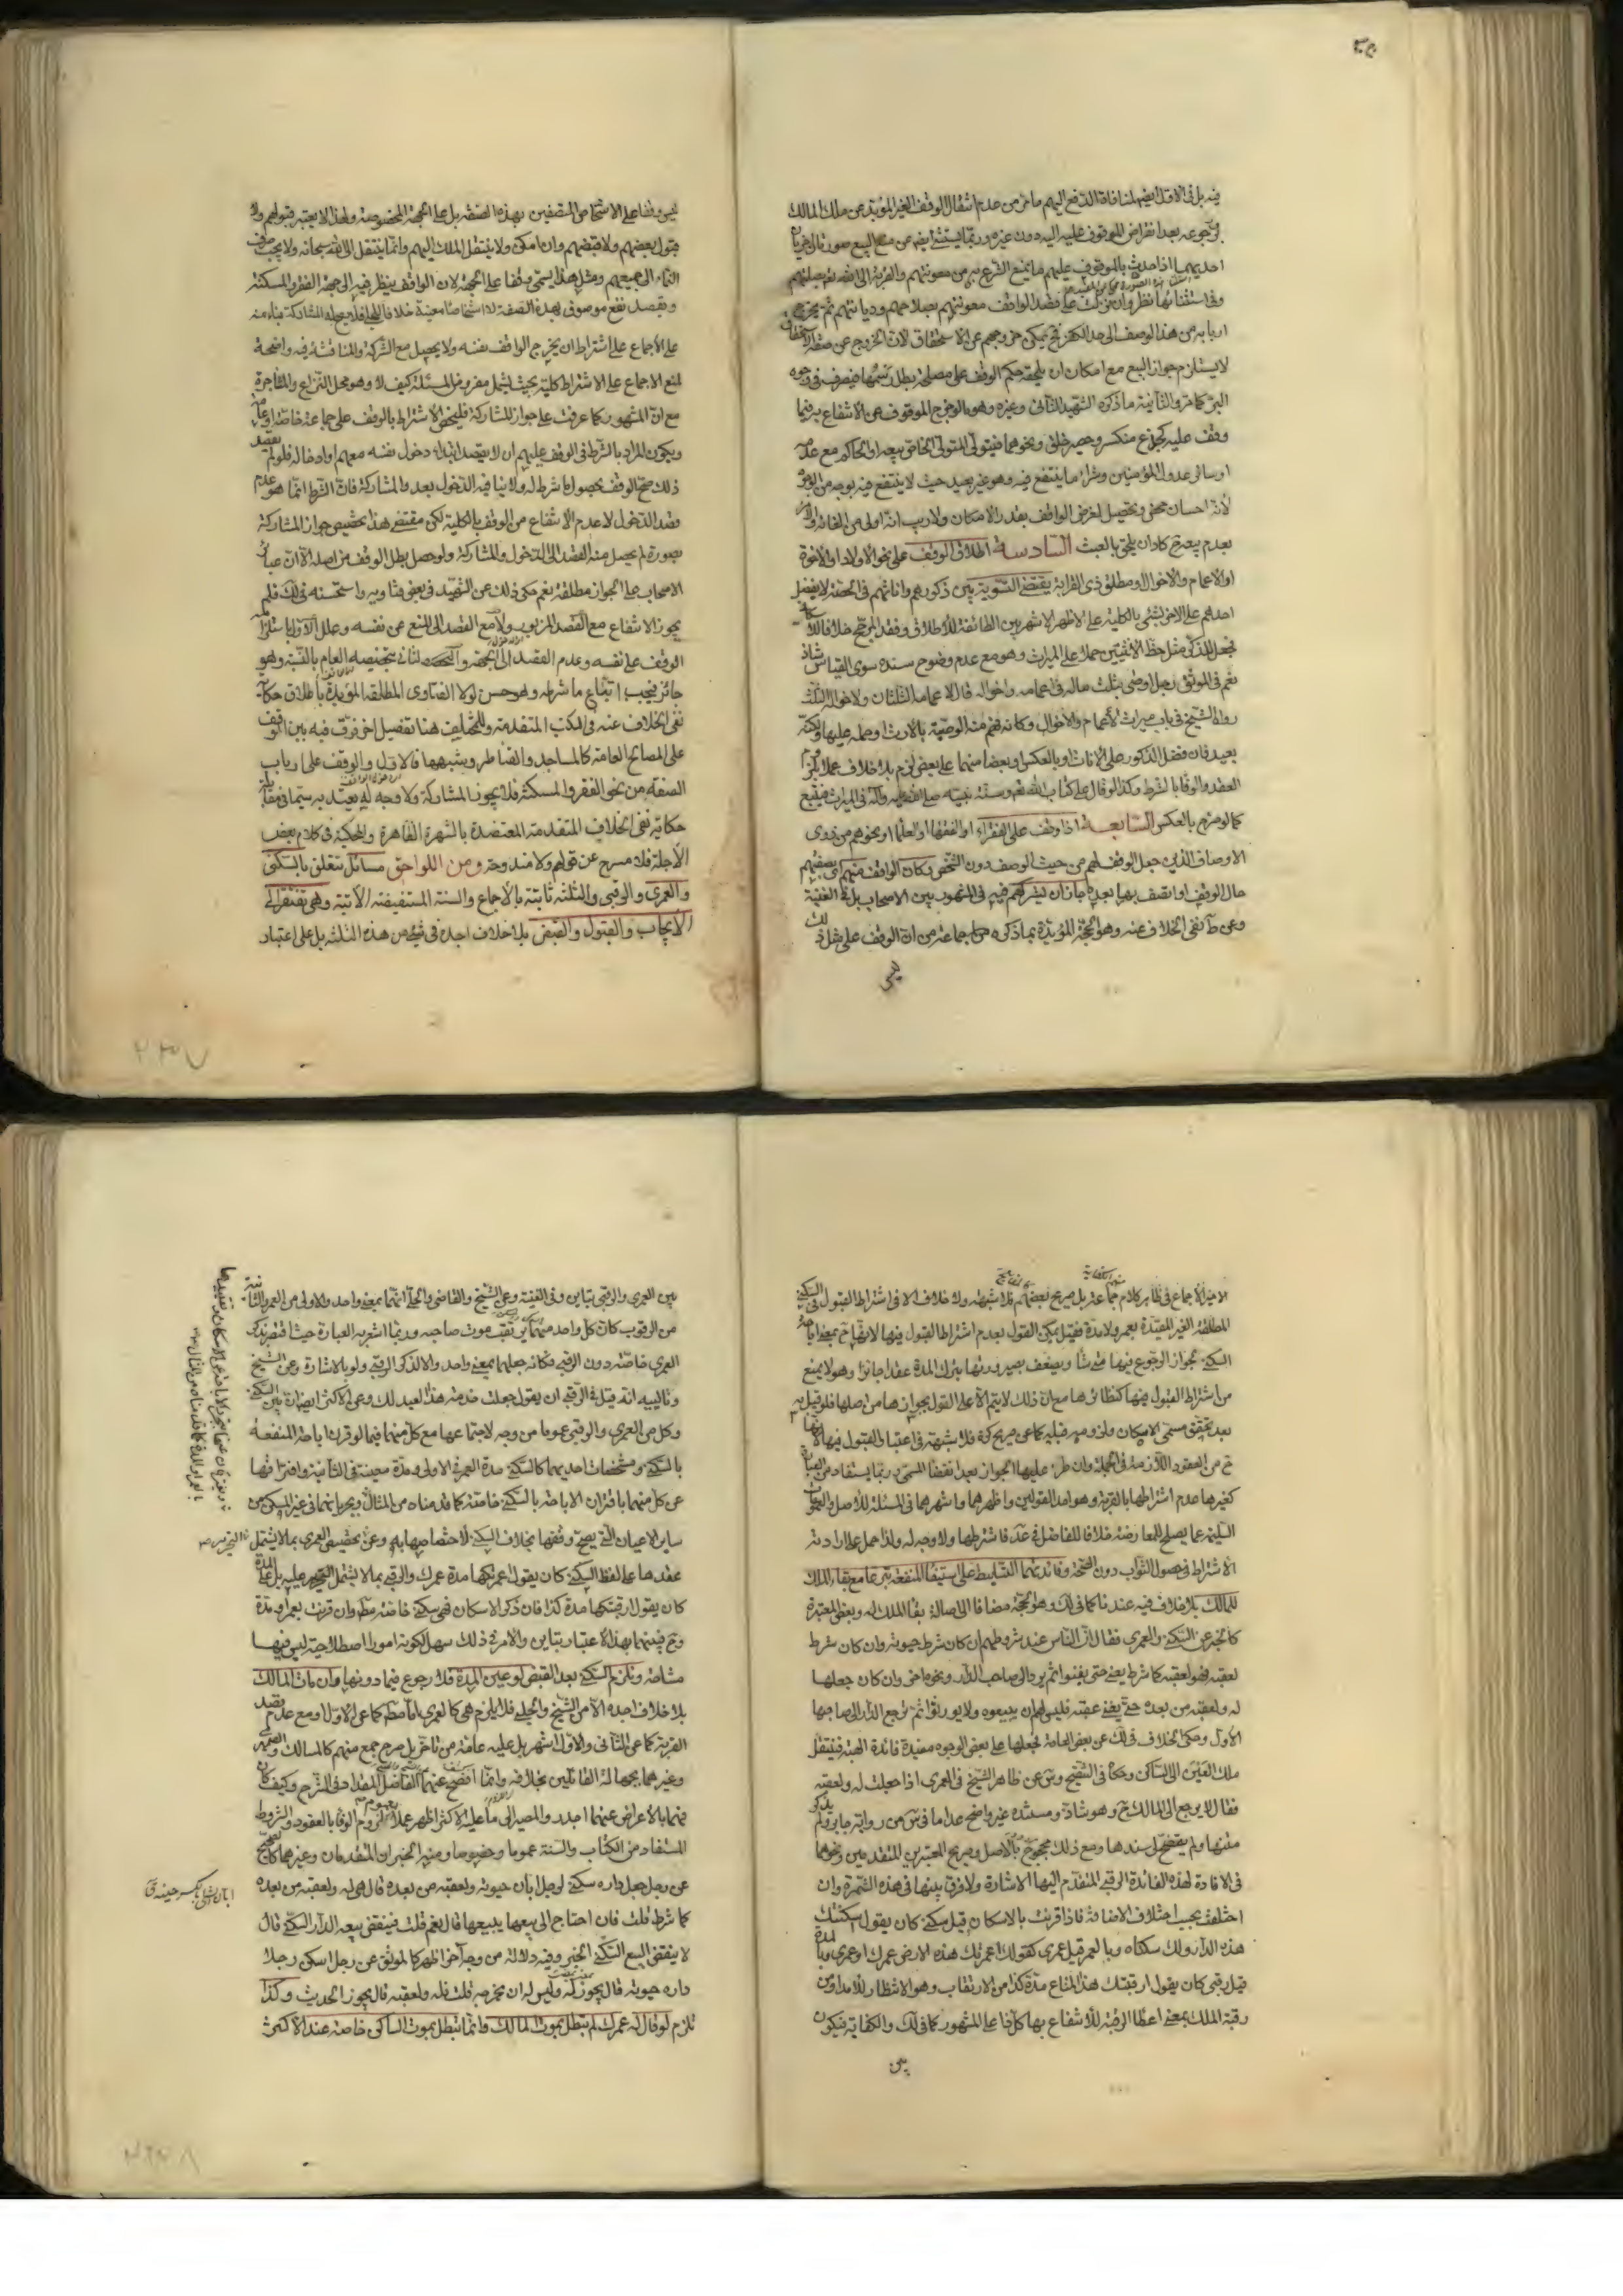 فيه بل في الاول ايضا لمنافاة الدفع اليهم ما مر من عدم انتقال الوقف الغير المؤبد عن ملك المالك
برجوعه بعد انقراض الموقوف عليه اليه دون غيره وربما يستثنى ايضا من منع البيع صورتان اخريان
احديهما اذا حدث بالموقوف عليهم ما يمنع الشرع من معونتهم والقربة الى الله تعالى بصلتهم
وفي استثنائها نظر وان نزلت على قصد الواقف معونتهم بصلاحهم وديانتهم ثم يخرج
اربابه من هذا الوصف الى حد الكفر فح يمكن خروجهم عن الاستحقاق لان الخروج عن صفة الاستحقاق
لا يستلزم جواز البيع مع امكان ان يلحقه حكم الوقف على مصلحة بطل رسمها فيصرف في وجوه
البر كما مر والثانية ما ذكره الشهيد الثاني وغيره وهو ما لو خرج الموقوف عن الانتفاع به فيما
وقف عليه كجذع منكسر وحصير خلق ونحوهما فيتولى المتولى الخاص بيعه او الحاكم مع عدمه
او سائر عدول المؤمنين وشراء ما ينتفع فيه وهو غير بعيد حيث لا ينتفع فيه بوجه من الوجوه
لانه احسان محض وتحصيل لغرض الواقف بقدر الامكان ولا ريب انه اولى من ابقائه والامر
بعدم بيعه ح كاد ان يلحق بالعبث السادسة اطلاق الوقف على نحو الاولاد او الاخوة
او الاعمام والاخوال ومطلق ذي القرابة يقتضي التسوية بين ذكورهم واناثهم في الحصة لا يفضل
احدهم على الاخر بشئ بالكلية على الاظهر الاشهر بين الطائفة للاطلاق وفقد المرجح خلافا للاسكافي
فجعل للذكر مثل حظ الانثيين حملا على الميراث وهو مع عدم وضوح سنده سوى القياس شاذ
نعم في الموثق رجل اوصى بثلث ماله في اعمامه واخواله قال لاعمامه الثلثان ولاخواله الثلث
رواه الشيخ في باب ميراث الاعمام والاخوال وكانه فهم منه الوصية بالارث او حمله عليها ولكنه
بعيد فان فضل الذكور على الاناث او بالعكس او بعضا منهما على بعض لزم بلا خلاف عملا بلزوم
العقد والوفا بالشرط وكذا لو قال على كتاب الله تعم وسنة نبيه صلى الله عليه وآله في الميراث فيتبع
كما لو صرح بالعكس السابعة اذا وقف على الفقراء او الفقها او العلما ونحوهم من ذوي
الاوصاف الذين جعل الوقف لهم من حيث الوصف دون الشخص وكان الواقف منهم في بعضهم
حال الوقف او اتصف بها بعده جاز ان يشركهم فيه في المشهور بين الاصحاب بل في الغنية
وعن ط نفى الخلاف عنه وهو الحجة المؤيدة بما ذكره جماعة من ان الوقف على مثل ذلك
ليس
ليس وقفا على الاشخاص المتصفين بهذه الصفة بل على الجهة المخصوصة ولهذا لا يعتبر قبولهم ولا
قبول بعضهم ولا قبضهم وان امكن ولا ينتقل الملك اليهم وانما ينتقل الى الله سبحانه ولا يجب صرف
النماء الى جميعهم ومثل هذا يسمى وقفا على الجهة لان الواقف ينظر فيه الى جهة الفقر والمسكنة
ويقصد نفع موصوف بهذه الصفة لا اشخاصا معينة خلافا للحلي فلا يجوز له المشاركة بناء منه
على الاجماع على اشتراط ان يخرج الواقف نفسه ولا يحصل مع الشركة والمناقشة فيه واضحة
لمنع الاجماع على الاشتراط كلية بحيث يشمل مفروض المسئلة كيف لا وهو محل النزاع والمشاجرة
مع ان المشهور كما عرفت على جواز المشاركة فليختص الاشتراط بالوقف على جماعة خاصة او عامة
ويكون المراد بالشرط في الوقف عليهم ان لا يقصد ابتداء دخول نفسه معهم وادخاله فلو لم يقصد
ذلك صح الوقف لحصول ما شرط له ولا ينافيه الدخول بعد والمشاركة فان الشرط انما هو عدم
قصد الدخول لا عدم الانتفاع من الوقف بالكلية لكن مقتضى هذا تخصيص جواز المشاركة
بصورة لم يحصل منه القصد الى الدخول والمشاركة ولو حصل بطل الوقف من اصله الا ان عبائر
الاصحاب على الجواز مطلقة نعم حكى ذلك عن الشهيد في بعض فتاويه واستحسنه في لك فلم
يجوز الانتفاع مع القصد المزبور ولا مع القصد الى المنع عن نفسه وعلل الاول باستلزامه
الوقف على نفسه وعدم القصد الى الجهة والثاني بتخصيصه العام بالنية وهو
جائز فيجب اتباع ما شرطه وهو حسن لولا الفتاوى المطلقة المؤيدة باطلاق حكاية
نفى الخلاف عنه في الكتب المتقدمة وللمختلف هنا تفصيل اخر فرق فيه بين الوقف
على المصالح العامة كالمساجد والقناطر وشبهها فالاول والوقف على ارباب
الصفة من نحو الفقر والمسكنة فلا يجوز المشاركة ولا وجه له يعتد به سيما في مقابلة
حكاية نفى الخلاف المتقدمة المعتضدة بالشهرة الظاهرة والمحكية في كلام بعض
الاجلة فلا مسرح عن قولهم ولا مندوحة ومن اللواحق مسائل تتعلق بالسكنى
والعمرى والرقبى والثلثة ثابتة بالاجماع والسنة المستفيضة الآتية وهي تفتقر الى
الايجاب والقبول والقبض بلا خلاف اجده في شئ من هذه الثلثة بل على اعتبار
الاخير الاجماع في ظاهر كلام جماعة بل صريح بعضهم فلا شبهة ولا خلاف الا في اشتراط القبول في السكنى
المطلقة الغير المقيدة بعمر ولا مدة فقيل يمكن القول بعدم اشتراط القبول فيها لانها ح بمعنى اباحة
السكنى لجواز الرجوع فيها متى شاء ويضعف بصيرورتها بترك المدة عقدا جائزا وهو لا يمنع
من اشتراط القبول فيها كنظائرها مع ان ذلك لا يتم الا على القول بجوازها من اصلها فلو قيل به
بعد تحقق مسمى الاسكان ولزومه قبله كما عن صريح كره فلا شبهة في اعتبار القبول فيها لانها
ح من العقود اللازمة في الجملة وان طرء عليها الجواز بعد انقضا المسمى وربما يستفاد من العبارة
كغيرها عدم اشتراطها بالقربة وهو احد القولين واظهرهما واشهرهما في المسئلة للاصل والعموم
السليمة عما يصلح للمعارضة خلافا للفاضل في عد فاشترطها ولا وجه له ولذا حمل على ارادته
الاشتراط في حصول الثواب دون الصحة وفائدتهما التسليط على استيفا المنفعة تبرعا مع بقاء الملك
للمالك بلا خلاف فيه عندنا كما في لك وهو الحجة مضافا الى اصالة بقا الملك له وبعض المعتبرة
كالخبر عن السكنى والعمرى فقال ان الناس عند شروطهم ان كان شرط حيوته وان كان شرط
لعقبه فهو لعقبه كما شرط يعنى حتى يفنوا ثم يرد الى صاحب الدار ونحوه اخر وان كان جعلها
له ولعقبه من بعده حتى يفنى عقبه فليس لهم ان يبيعوه ولا يورثوا ثم ترجع الدار الى صاحبها
الاول وحكى الخلاف في لك عن بعض العامة فجعلها على بعض الوجوه مفيدة فائدة الهبة فينتقل
ملك العين الى الساكن وحكاه في التنقيح وس عن ظاهر الشيخ في العمرى اذا جعلت له ولعقبه
فقال لا يرجع الى المالك ح وهو شاذ ومستنده غير واضح عدا ما في س من رواية جابر ولم يذكر
متنها ولم يفصح عن سندها ومع ذلك محجوج بالاصل وصريح المعتبرين المتقدمين ونحوهما
في الافادة لهذه الفائدة الرقبى المتقدم اليها الاشارة ولا فرق بينها في هذه الثمرة وان
اختلفت بحسب اختلاف الاضافة فاذا قرنت بالاسكان قيل سكنى كان يقول اسكنتك
هذه الدار ولك سكناه وبالعمر قيل عمرى كقولك اعمرتك هذه الارض عمرك او عمري وبالمدة
قيل رقبى كان يقول ارقبتك هذا المتاع مدة كذا من الارتقاب وهو الانتظار للامد او من
رقبة الملك بمعنى اعطا الرقبة للانتفاع بها كل ذا على المشهور كما في لك والكفاية فيكون
بين
بين العمرى والرقبى تباين وفي الغنية وعن الشيخ والقاضي والحلي انهما بمعنى واحد والاولى من العمر والثانية
من الرقوب كان كل واحد منهما يرتقب موت صاحبه وربما اشعر به العبارة حيث اقتصر بذكر
العمرى خاصة دون الرقبى فكانه جعلهما بمعنى واحد والا لذكر الرقبى ولو بالاشارة وعن الشيخ
وتاليه انه قيل في الرقبى ان يقول جعلت خدمة هذا العبد لك وعن الاكثر ايضا ان بين السكنى
وكل من العمرى والرقبى عموما من وجه لاجتماعها مع كل منهما فيما لو قرن اباحة المنفعة
بالسكنى ومشخصات احديهما كالسكنى مدة العمر في الاولى ومدة معينة في الثانية وافتراقها
عن كل منهما باقتران الاباحة بالسكنى خاصة كما قدمناه من المثال ويجريانهما في غير المسكن من
ساير الاعيان التي يصح وقفها بخلاف السكنى لاختصاصها به وعن بتخصيص العمرى بما لا يشتمل
عقدها على لفظ السكنى كان يقول اعمرتكها مدة عمرك والرقبى بما لا يشتمل عليه بل على المدة
كان يقول ارقبتكها مدة كذا فان ذكر الاسكان فهي سكنى خاصة مط وان قرنت بعمر او مدة
وح فبينهما بهذا الاعتبار تباين والامر في ذلك سهل لكونه امورا اصطلاحية ليس فيها
مشاحة وتلزم السكنى بعد القبض لو عين المدة فلا رجوع فيما دونها وان مات المالك
بلا خلاف اجده الا من الشيخ والحلي فلا يلزم هي كالعمرى اما مطلقا كما عن الاول او مع عدم قصد
القربة كما عن الثاني والاول اشهر بل عليه عامة من تاخر بل صرح جمع منهم كالمسالك والصيمري
وغيرهما بجهالة القائلين بخلافه وانما افصح عنهما الفاضل المقداد في الشرح وكيف كان
فهما بالاعراض عنهما اجدر والمصير الى ما عليه الاكثر اظهر عملا بعموم لزوم الوفا بالعقود والشروط
المستفاد من الكتاب والسنة عموما وخصوصا ومنه الخبران المتقدمان وغيرهما كالصحيح
عن رجل جعل داره سكنى لرجل ابان حيوته ولعقبه من بعده قال هي له ولعقبه من بعده
كما شرط قلت فان احتاج الى بيعها يبيعها قال نعم قلت فينقض بيعه الدار السكنى قال
لا ينقض البيع السكنى الخبر وفيه دلالة من وجه اخر اظهر كالموثق عن رجل اسكن رجلا
داره حيوته قال يجوز له وليس له ان يخرجه قلت فله ولعقبه قال يجوز الحديث وكذا
تلزم لو قال له عمرك لم تبطل بموت المالك وانما تبطل بموت الساكن خاصة عند الاكثر